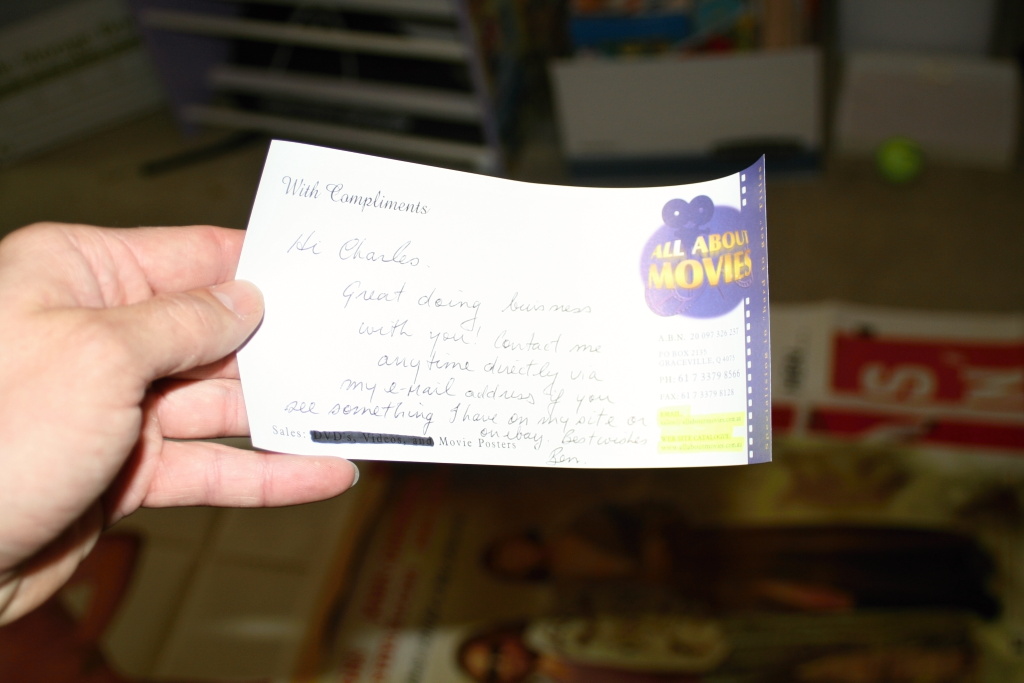 With Compliments
Hi Charles.
Great doing buisness
with you! Contact me
anytime directly via
my e-mail address if you
see something I have on my site or
on ebay. Best wishes
Ren.
Sales: DVD's, Videos, and Movie Posters
ALL ABOUT
MOVIES
A.B.N.
PO BOX
GRACEVILLE, Q 4075
PH: 61 7 3379 8566
FAX: 61 7 3379 8128
Specialists in Hard to Get Titles